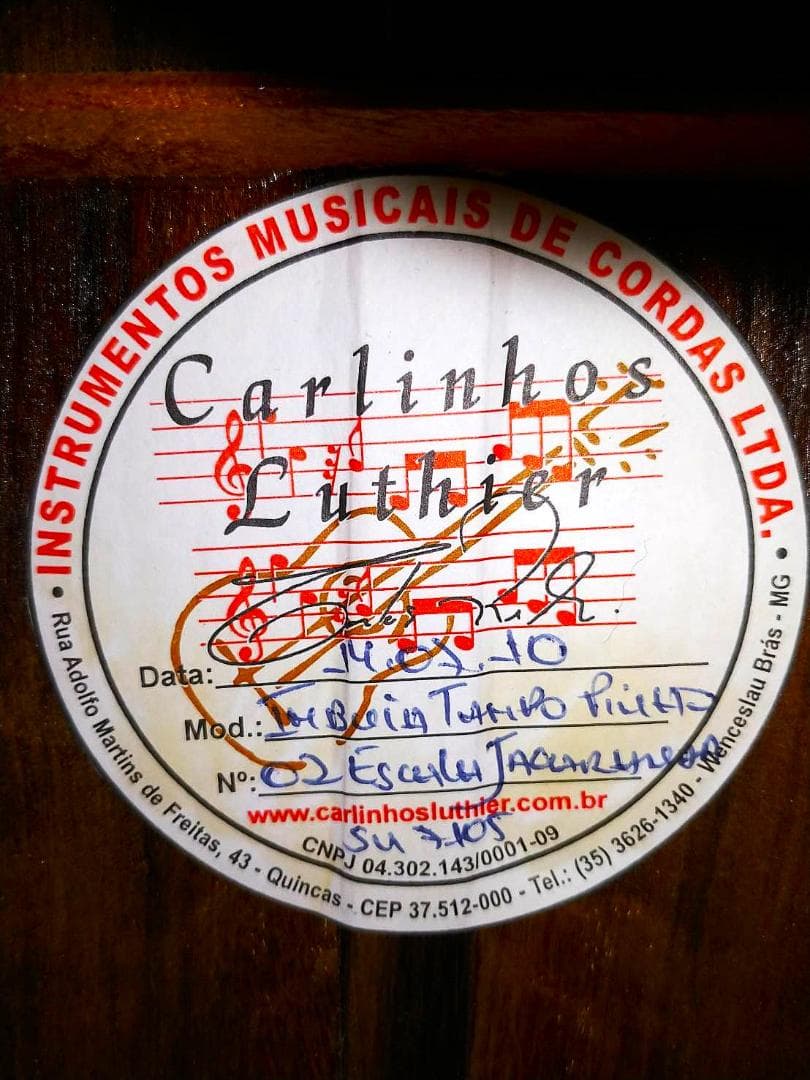 INSTRUMENTOS MUSICAIS DE CORDAS LTDA.
Carlinhos
Luthier
Data: 14.07.10
Mod.: IMBUIA TAMPO PINHO
Nº: 02 ESCALA JACARANDA
www.carlinhosluthier.com.br
SU 7105
CNPJ 04.302.143/0001-09
• Rua Adolfo Martins de Freitas, 43 - Quincas - CEP 37.512-000 - Tel.: (35) 3626-1340 - Wenceslau Brás - MG •